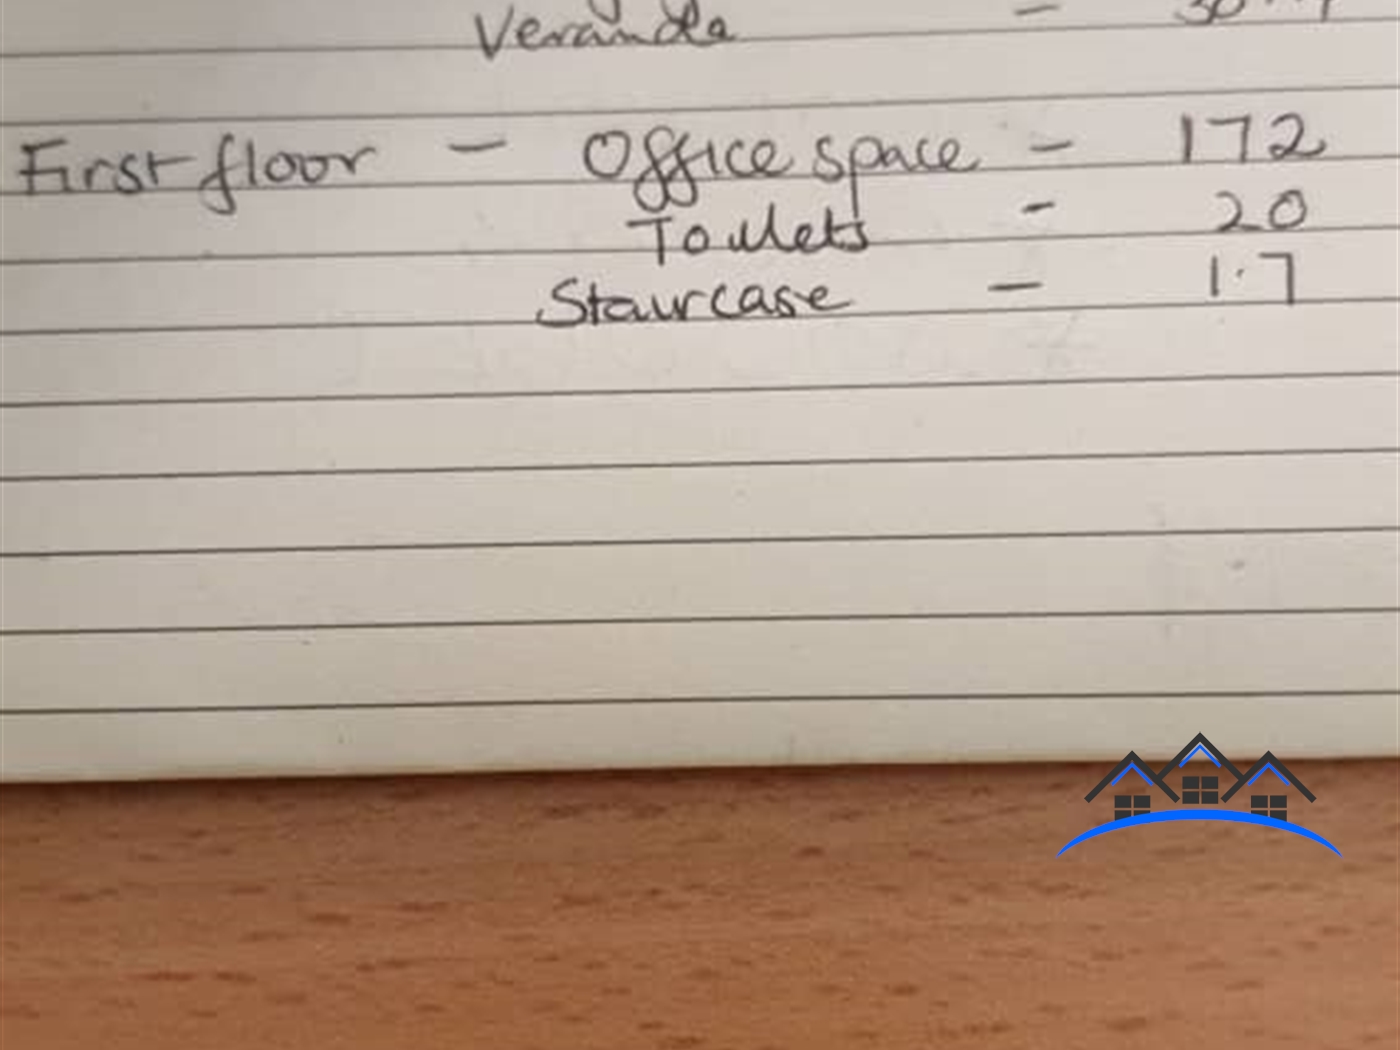 Veranda -
First floor - Office space - 172
Toilets - 20
Staircase - 1.7